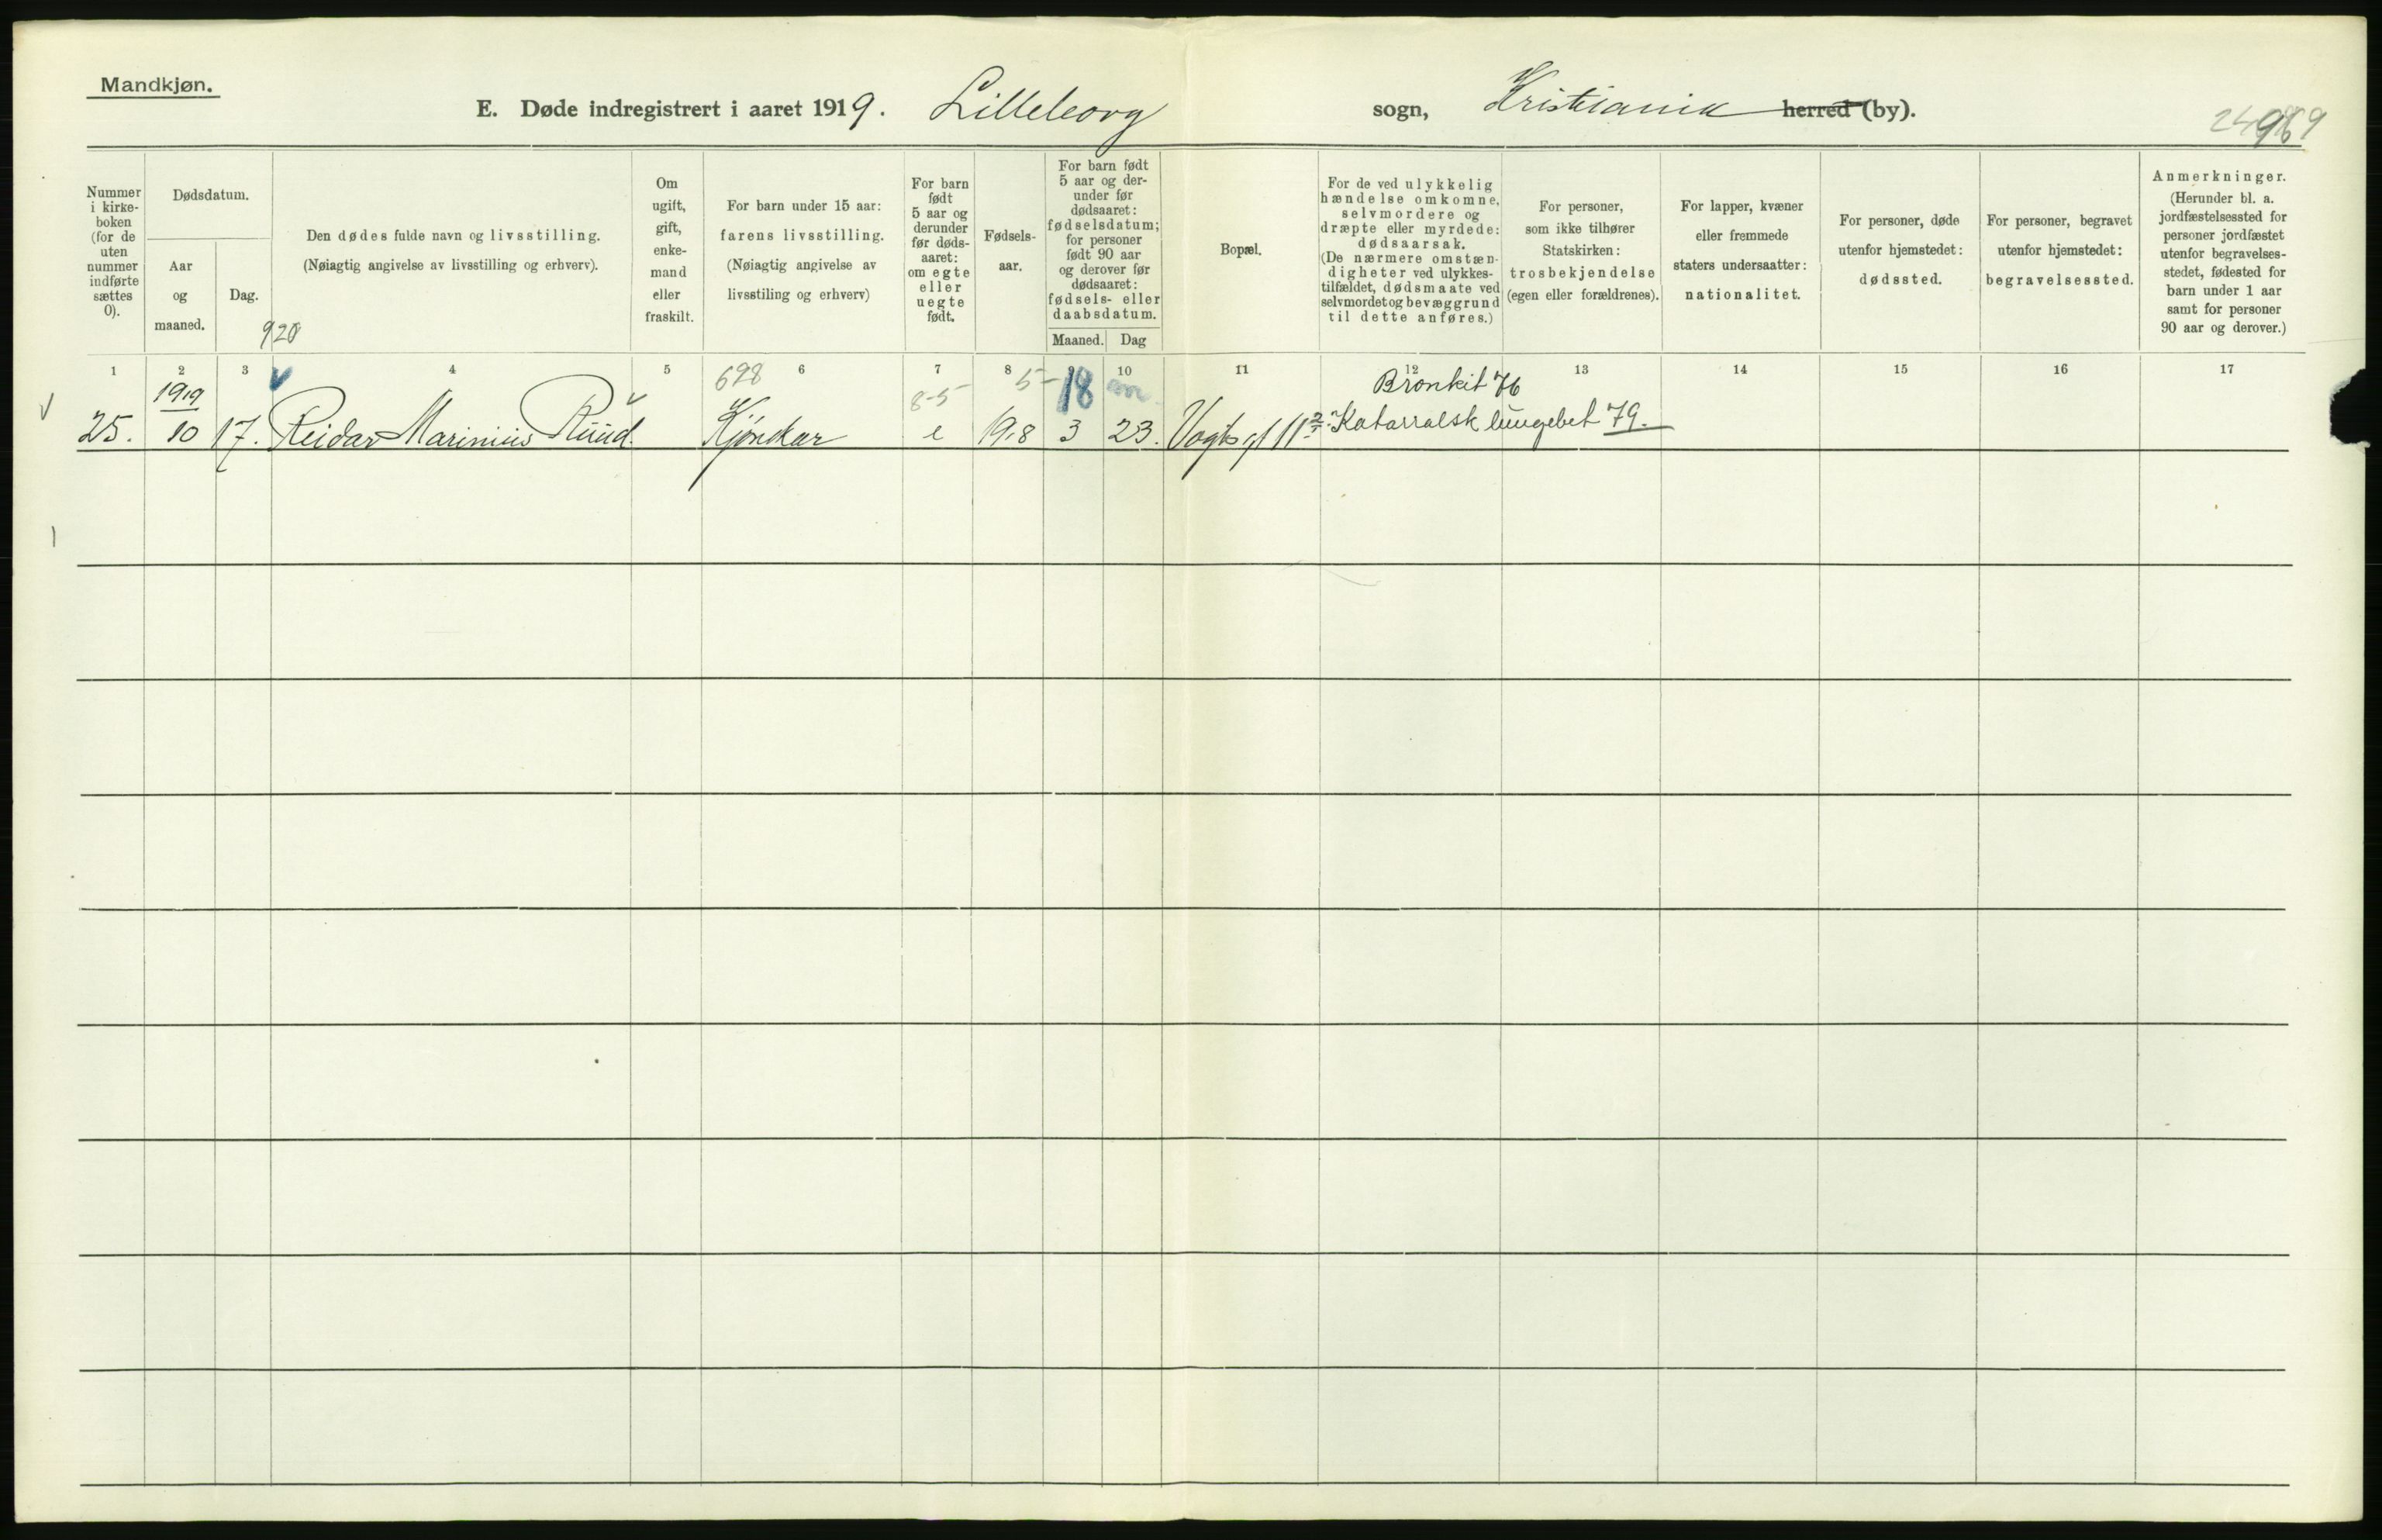 Mandkjøn.
E. Døde indregistrert i aaret 1919. Lilleborg sogn, Kristiania herred (by).
Nummer i kirke-boken (for de uten nummer indførte sættes 0).
Dødsdatum.
Aar og maaned.
Dag.
920
Den dødes fulde navn og livsstilling.
(Nøiagtig angivelse av livsstilling og erhverv).
Om ugift, gift, enke-mand eller fraskilt.
For barn under 15 aar:
farens livsstilling.
(Nøiagtig angivelse av
livsstiling og erhverv)
For barn født 5 aar og derunder før døds-aaret: om egte eller uegte født.
Fødsels-aar.
For barn født 5 aar og der-under før dødsaaret: fødselsdatum; for personer født 90 aar og derover før dødsaaret: fødsels- eller daabsdatum.
Maaned. Dag
Bopæl.
For de ved ulykkelig hændelse omkomne, selvmordere og dræpte eller myrdede: dødsaarsak.
(De nærmere omstæn-digheter ved ulykkes-tilfældet, dødsmaate ved selvmordet og bevæggrund til dette anføres.)
For personer, som ikke tilhører Statskirken: trosbekjendelse (egen eller forældrenes).
For lapper, kvæner eller fremmede staters undersaatter: nationalitet.
For personer, døde utenfor hjemstedet: dødssted.
For personer, begravet utenfor hjemstedet: begravelsessted.
Anmerkninger.
(Herunder bl. a. jordfæstelsessted for personer jordfæstet utenfor begravelses-stedet, fødested for barn under 1 aar samt for personer 90 aar og derover.)
1 2 3 4 5 6 7 8 10 11 12 13 14 15 16 17
1919 698 8-5 5- 18 Bronkit 76
25. 10 17. Reidar Marinius Ruud. Kjørekar e 1918 3 23. Vogts gt 11 Katarralsk lungebet 79.